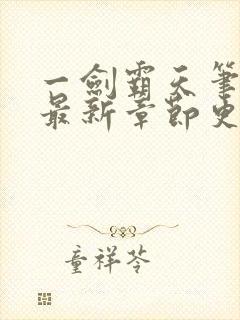 一劍霸天筆
最新章節史
童祥苓